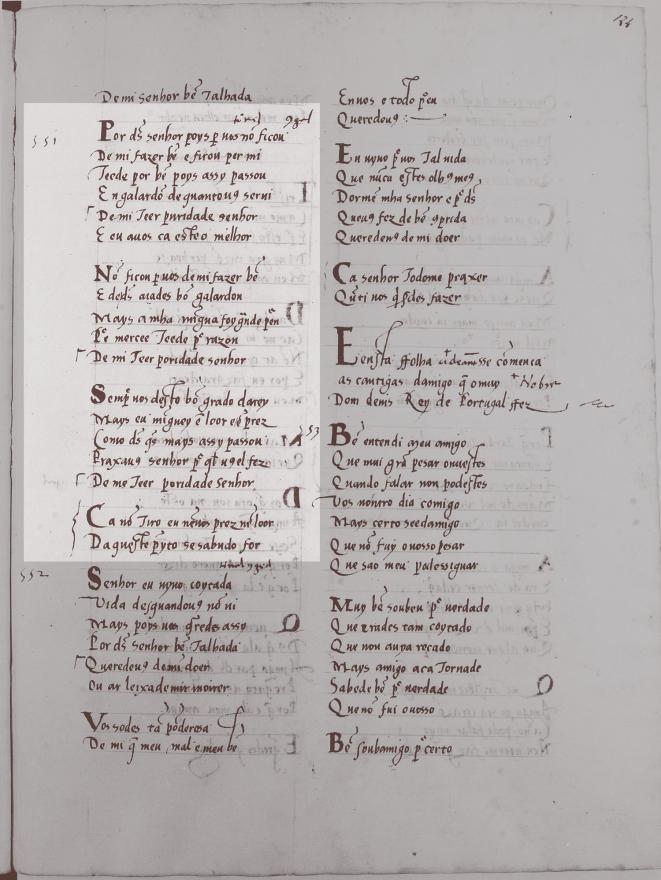 186
De mi senhor bẽ Talhada
551
Por ds̃ senhor poys p̱ uos nõ ficou
De mi fazer bẽ e ficou per mi
Teede por bẽ poys assy passou
En galardõ de quantoug serui
De mi Teer puridade senhor
E eu auos ca esteo milhor
Nõ ficou p̱ uos de mi fazer bẽ
E de ds̃ aiades bõ galardon
Mays a mha migua foy gñde pẽn
Pr̃e mercee Teede pr̃ razon
De mi Teer poridade senhor
Semp̃ uos desto bõ grado darey
Mays eu miguey ẽ loor e ẽ prez
Como ds̃ q̃s mays assy passou
Praxaug senhor pr̃ ql̃ ugel fez
De me Teer poridade senhor
Ca nõ Tiro eu nẽ uos prez nẽ loor
Daqueste p̃yto se sabudo for
552
Senhor eu uyuo coytada
Vida desquandoug nõ ui
Mays poys uos q̃redes assy
Por ds̃ senhor bẽ Talhada
Queredeug de mi doer
Ou ar leixademir moirer
Vos sodes tã poderosa
De mi q̃ meu mal e meu bẽ
En uos e todo pr̃ en
Queredeug :
En uyuo pr̃ uos Tal uida
Que nũca estes olhg megg
Dormẽ mha senhor e pr̃ ds̃
Queug fez de bẽ cõprida
Queredeug de mi doer
Ca senhor Todome praxer
Quãti uos q̃sides fazer
En esta ffolha adeãnsse começa
as cantigas damigo q̃ o muy Nobre
Dom denis Rey de Portugal ffez
553
Bẽ entendi meu amigo
Que mui grã pesar ouuestes
Quando falar non podestes
Vos nõutro dia comigo
Mays certo seedamigo
Que nõ fuy o uosso pesar
Que sao meu podess iguar
Muy bẽ soubeu pr̃ uerdade
Que erades tam coytado
Que non auya recado
Mays amigo aca Tornade
Sabede bẽ pr̃ uerdade
Que nõ fui o uosso
Bẽ soubamigo pr̃ certo